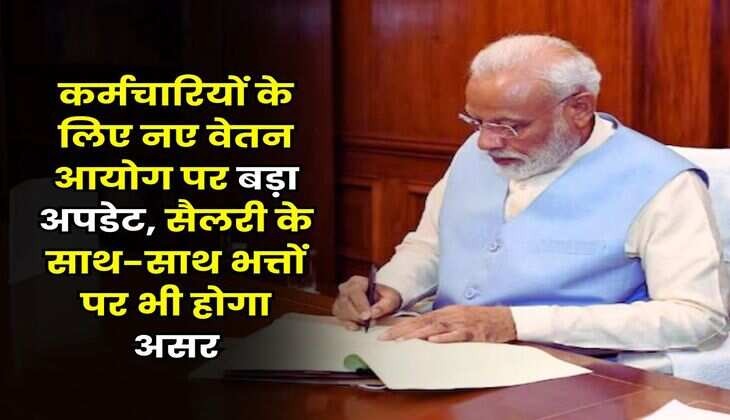 कर्मचारियों के
लिए नए वेतन
आयोग पर बड़ा
अपडेट, सैलरी के
साथ-साथ भत्तों
पर भी होगा
असर